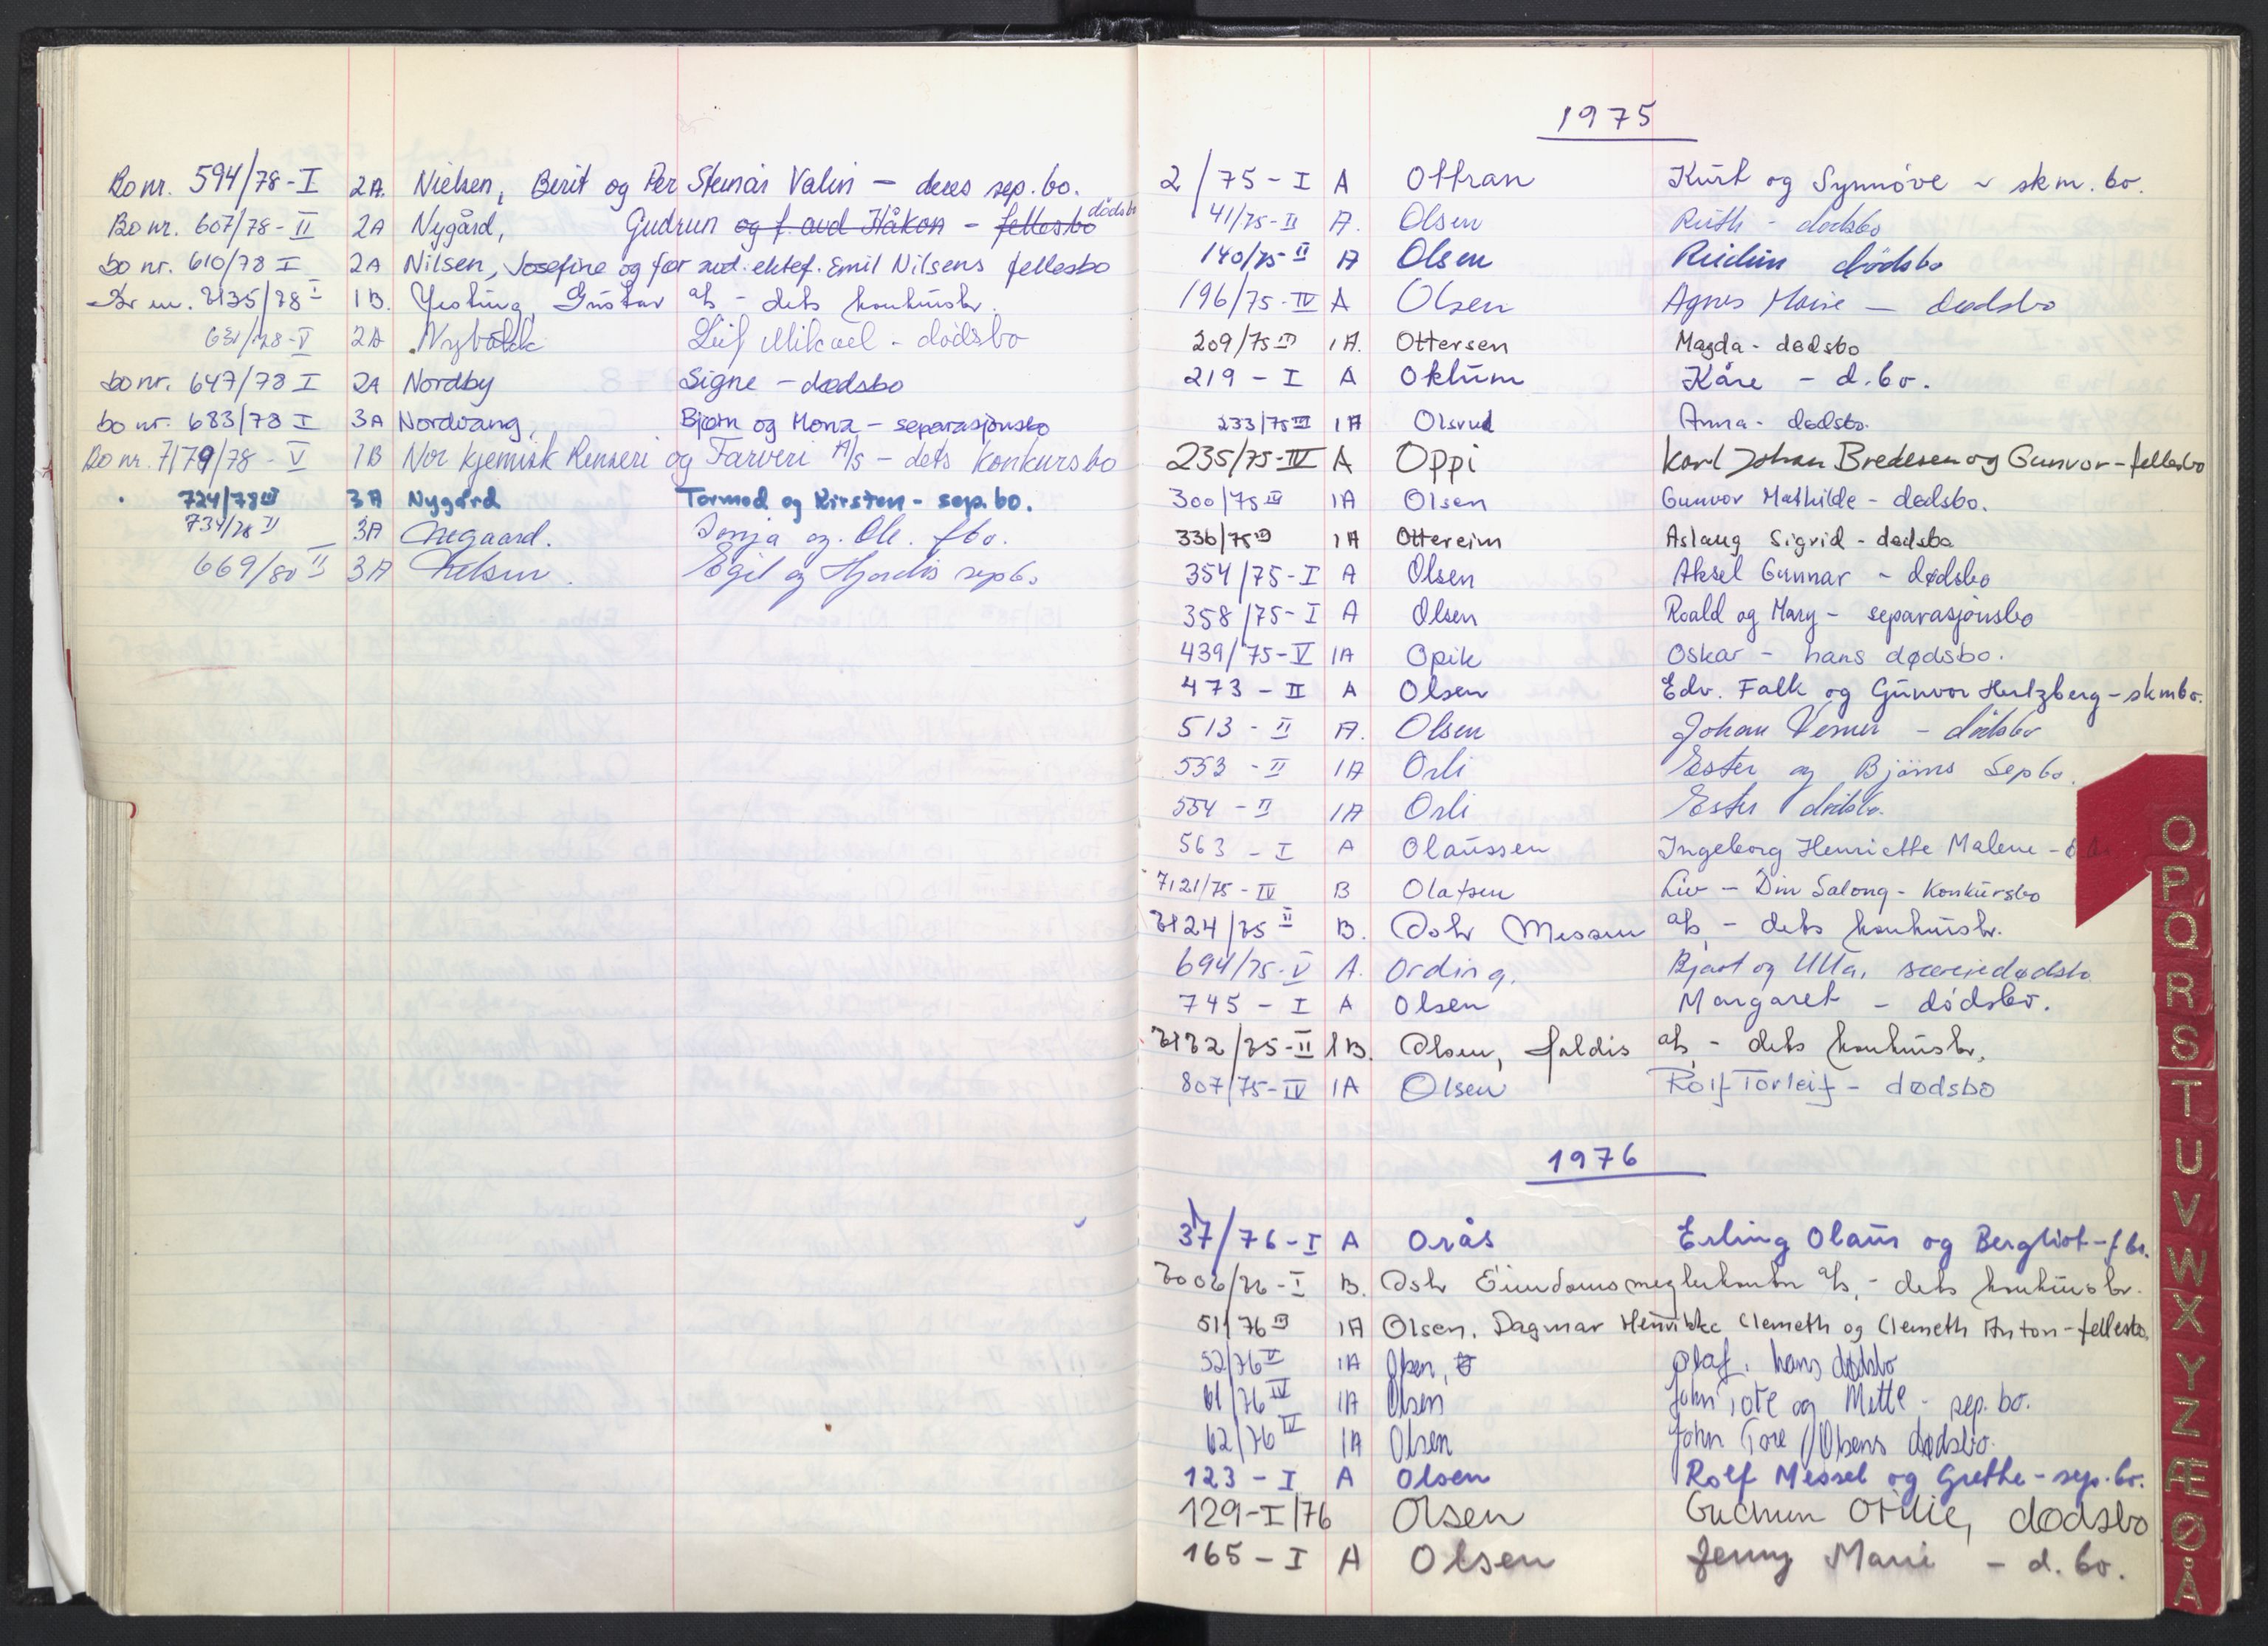 Bo nr. 594/78-I 2A. Nielsen, Berit og Per Steinar Valin - deres sep. bo.
Bo nr. 607/78-II 2A Nygård, Gudrun og f. avd Håkon - fellesbo dødsbo
bo nr. 610/78 I 2A Nilsen, Josefine og før avd. ektef. Emil Nilsens fellesbo
7135/78 I 1B. Gustav a/s - dets konkursbo.
631/78-V 2A Leif Mikael - dødsbo
bo nr. 647/78 I 2A Nordby Signe - dødsbo
bo nr. 683/78 I 3A Nordvang, Bjørn og Mona - separasjonsbo
Bo nr. 7179/78-V 1B Nor kjemisk Renseri og Farveri A/s - dets konkursbo
724/78 III 3A Nygård Tormod og Kirsten - sep. bo.
734/78 II 3A Negaard. Sonja og Ole. fbo.
669/80 II 3A Nilsen. Egil og Hjørdis sepbo
1975
2/75-I A Ottran Kurt og Synnøve - skm. bo.
41/75-II A. Olsen Ruth - dødsbo
140/75-II A Olsen Reidun dødsbo
196/75-IV A Olsen Agnes Marie - dødsbo
209/75 III 1A. Ottersen Magda - dødsbo
219-I A Oklum Kåre - d. bo.
233/75 III 1A Olsrud Anna - dødsbo.
235/75-IV A Oppi Karl Johan Bredesen og Gunvor - fellesbo
300/75 III 1A Olsen Gunvor Mathilde - dødsbo.
336/75 III 1A Ottereim Aslaug Sigrid - dødsbo
354/75-I A Olsen Aksel Gunnar - dødsbo
358/75-I A Olsen Roald og Mary - separasjonsbo
439/75-V 1A Opik Oskar - hans dødsbo.
473-II A Olsen Edv. Falk og Gunvor Hertzberg - skmbo.
513-II A. Olsen Johan Verner - dødsbo
553-II 1A Orli Ester og Bjørns Sepbo.
554-II 1A Orli Ester dødsbo.
563-I A Olaussen Ingeborg Henriette Malene -
7121/75-IV B Olafsen Liv - Din Salong - Konkursbo
7124/75 II B. Oslo Messen a/s - dets konkursbo.
694/75-V A. Ording. Bjart og Ulla, særeiedødsbo
745-I A Olsen Margaret - dødsbo.
7172/75-II 1B. Olsen, Haldis a/s - dets konkursbo.
807/75-IV 1A Olsen Rolf Torleif - dødsbo
1976
37/76-I A Orås Erling Olaus og Bergliot - fbo.
7006/76-I B. Oslo Eiendomsmeglerkontor a/s, - dets konkursbo.
51/76 III 1A Olsen, Dagmar Henrikke Clemeth og Clemeth Anton - fellesbo.
52/76 V 1A Olsen, Olaf, hans dødsbo
61/76 IV 1A Olsen John Tore og Mette - sep. bo.
62/76 IV 1A Olsen John Tore Olsens dødsbo.
123-I A Olsen Rolf Messel og Grethe - sep. bo.
129-I/76 Olsen Gudrun Otilie, dødsbo
165-I A Olsen Jenny Marie - d. bo.
O
P
Q
R
S
T
U
V
W
X
Y
Z
Æ
Ø
Å